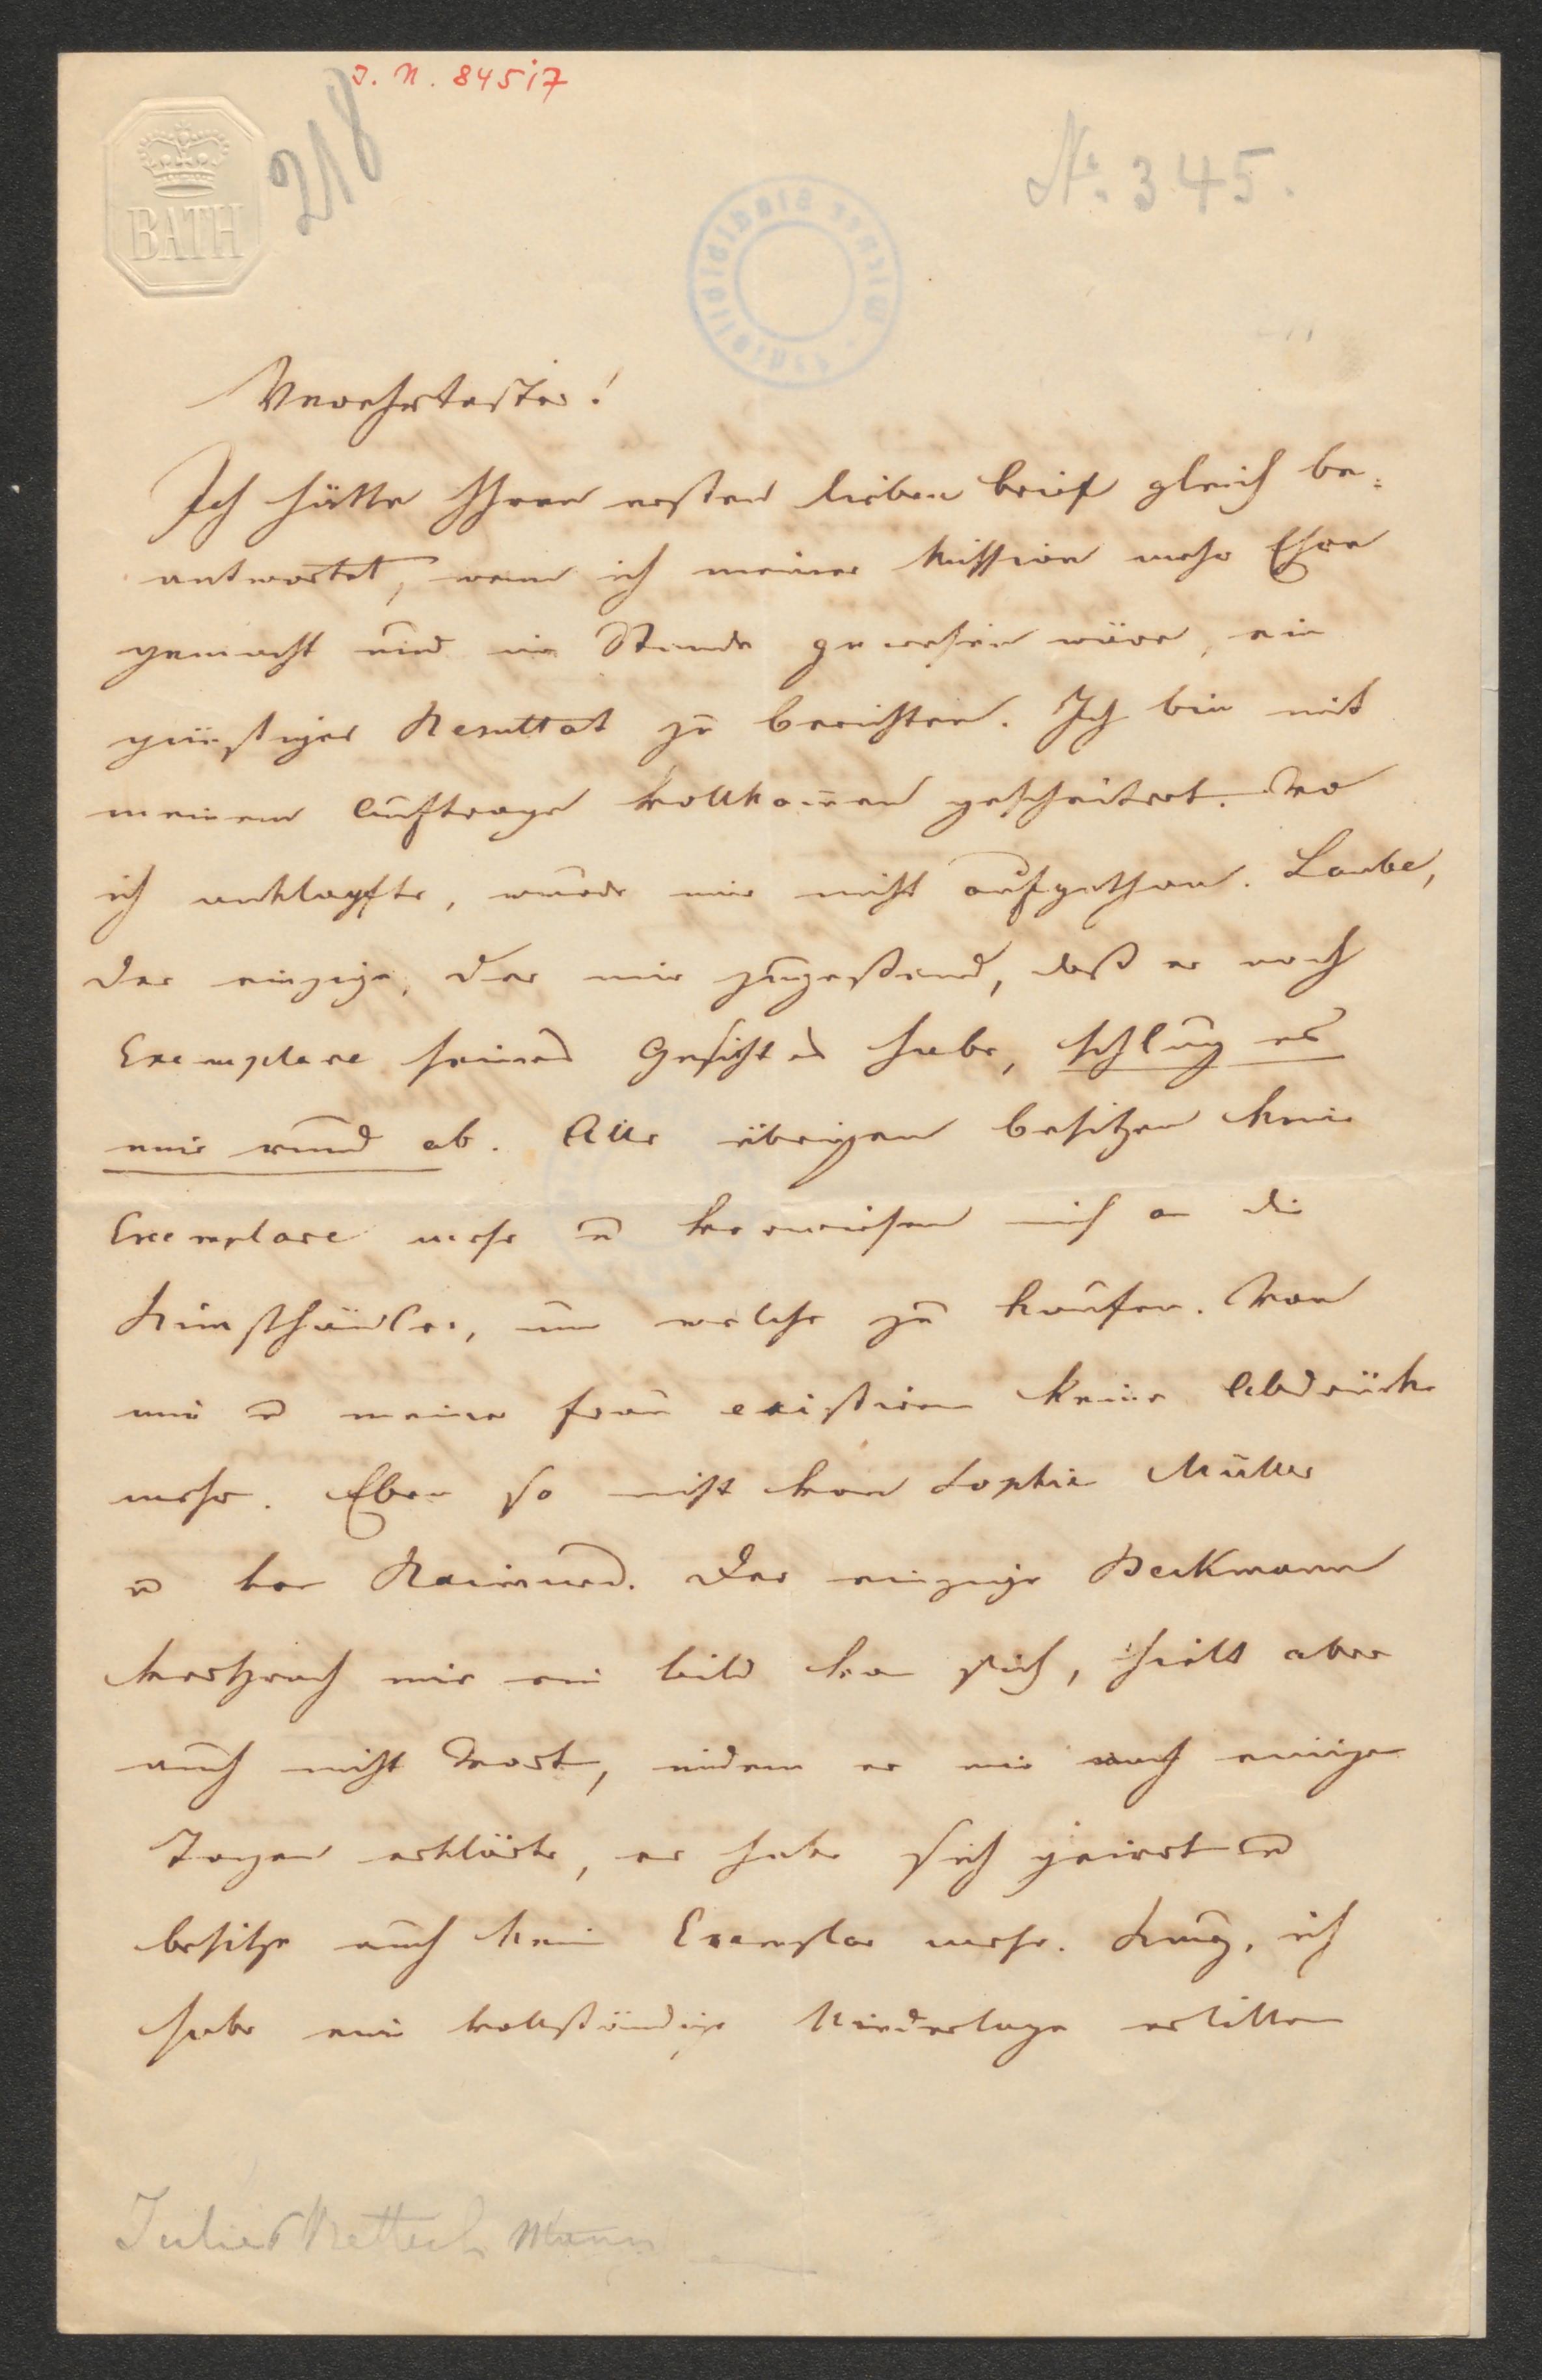 J. N. 84517
218
BATH
No. 345.
Wiener Stadtbibliothek
Verehrtester!
Ich hätte Ihren ersten lieben Brief gleich be=
antwortet, wenn ich meiner Mission mehr Ehre
gemacht und im Stande gewesen wäre, ein
günstiges Resultat zu berichten. Ich bin mit
meinem Auftrage vollkom̅en gescheitert. Wo
ich anklopfte, wurde mir nicht aufgethan. Laube,
der einzige, der mir zugestand, daß er noch
Exemplare seines Gesichtes habe, schlug es
mir rund ab. Alle übrigen besitzen kein
Exemplare mehr u verweisen mich an die
Kunsthändler, um welche zu kaufen. Von
mir u meiner Frau existiren keine Abdrücke
mehr. Eben so nicht von Sophie Müller
u von Raimund. Der einzige Beckmann
versprach mir ein Bild von sich, hielt aber
auch nicht Wort, indem er mir nach einigen
Tagen erklärte, er habe sich geirrt u
besitze auch kein Exemplar mehr. Kurz, ich
habe eine vollständige Niederlage erlitten
Julie Rettich Mann